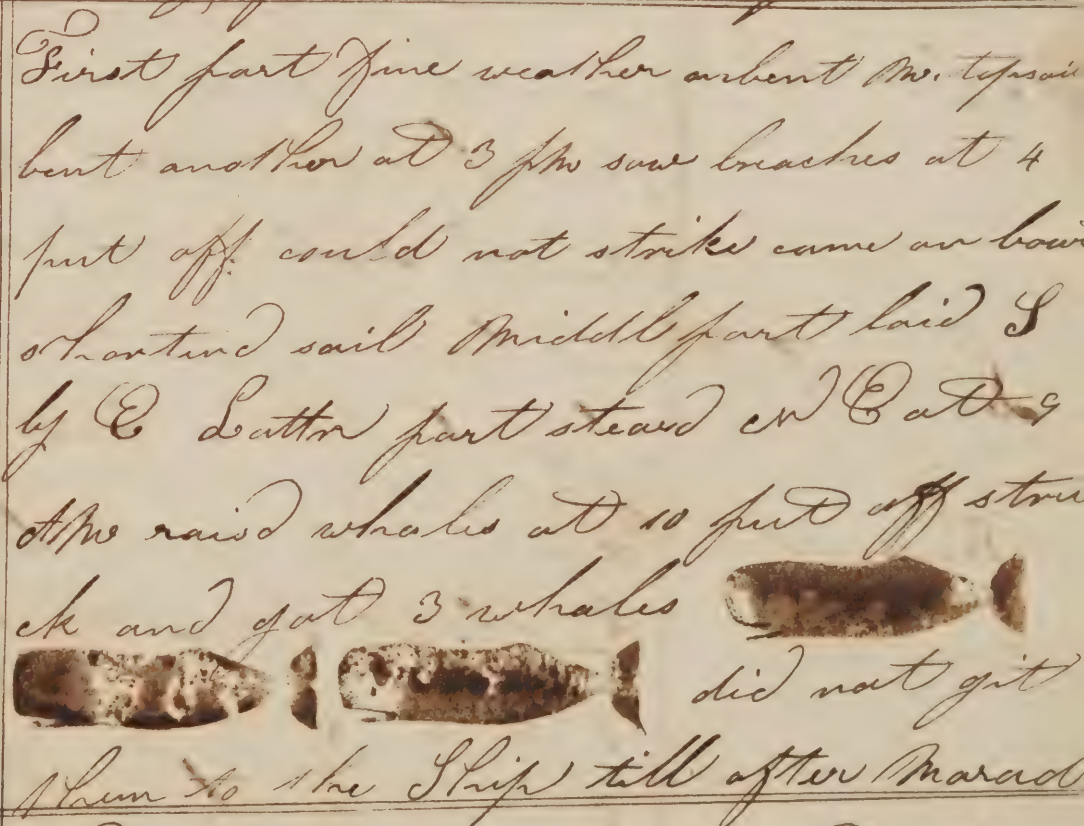 First part Fine weather unbent M. topsail
bent another at 3 PM saw breaches at 4
put off could not strike came on boar
shortind sail Middl part laid S
by E Lattr part steard N E at 9
AM raisd whales at 10 put off stru
ck and got 3 whales
did not git
them to the Ship till after